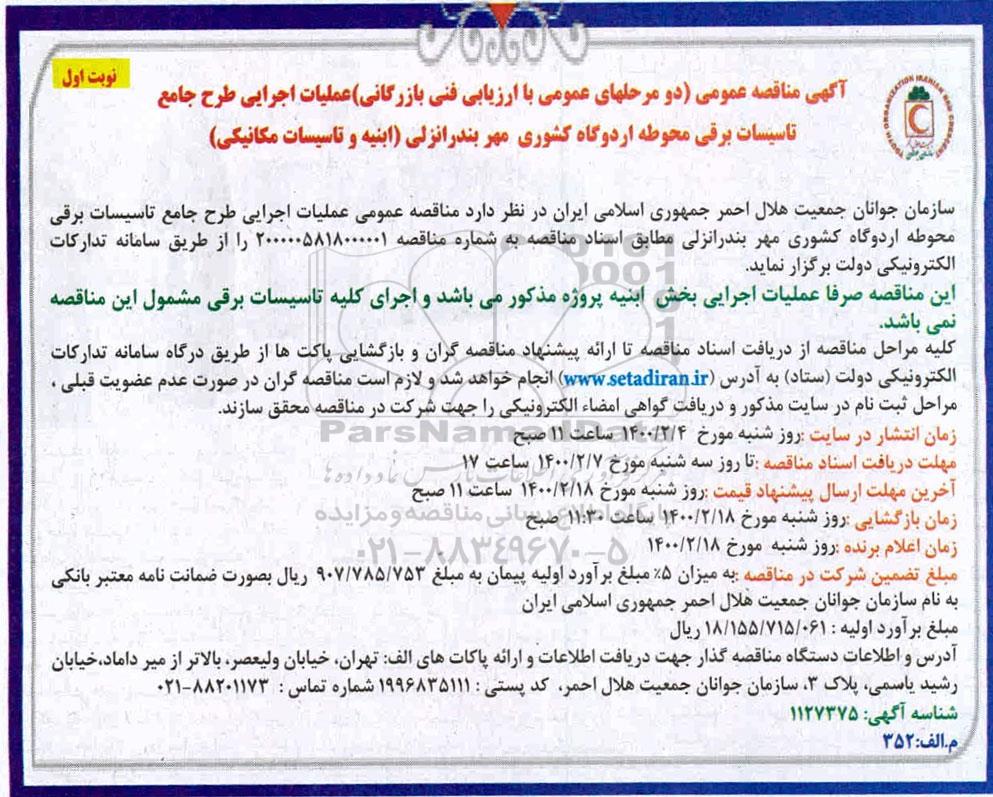 نوبت اول
آگهی مناقصه عمومی (دو مرحلهای عمومی با ارزیابی فنی بازرگانی)عملیات اجرایی طرح جامع
تاسیسات برقی محوطه اردوگاه کشوری مهر بندرانزلی (ابنیه و تاسیسات مکانیکی)
سازمان جوانان جمعیت هلال احمر جمهوری اسلامی ایران در نظر دارد مناقصه عمومی عملیات اجرایی طرح جامع تاسیسات برقی
محوطه اردوگاه کشوری مهر بندرانزلی مطابق اسناد مناقصه به شماره مناقصه ۲۰۰۰۰۰۵۸۱۸۰۰۰۰۰۱ را از طریق سامانه تدارکات
الکترونیکی دولت برگزار نماید.
این مناقصه صرفا عملیات اجرایی بخش ابنیه پروژه مذکور می باشد و اجرای کلیه تاسیسات برقی مشمول این مناقصه
نمی باشد.
کلیه مراحل مناقصه از دریافت اسناد مناقصه تا ارائه پیشنهاد مناقصه گران و بازگشایی پاکت ها از طریق درگاه سامانه تدارکات
الکترونیکی دولت (ستاد) به آدرس (www.setadiran.ir) انجام خواهد شد و لازم است مناقصه گران در صورت عدم عضویت قبلی ،
مراحل ثبت نام در سایت مذکور و دریافت گواهی امضاء الکترونیکی را جهت شرکت در مناقصه محقق سازند.
زمان انتشار در سایت :روز شنبه مورخ ۱۴۰۰/۲/۴ ساعت ۱۱ صبح
مهلت دریافت اسناد مناقصه :تا روز سه شنبه مورخ ۱۴۰۰/۲/۷ ساعت ۱۷
آخرین مهلت ارسال پیشنهاد قیمت :روز شنبه مورخ ۱۴۰۰/۲/۱۸ ساعت ۱۱ صبح
زمان بازگشایی :روز شنبه مورخ ۱۴۰۰/۲/۱۸ ساعت ۱۱:۳۰ صبح
زمان اعلام برنده :روز شنبه مورخ ۱۴۰۰/۲/۱۸
مبلغ تضمین شرکت در مناقصه :به میزان ۵٪ مبلغ برآورد اولیه پیمان به مبلغ ۹۰۷/۷۸۵/۷۵۳ ریال بصورت ضمانت نامه معتبر بانکی
به نام سازمان جوانان جمعیت هلال احمر جمهوری اسلامی ایران
مبلغ برآورد اولیه : ۱۸/۱۵۵/۷۱۵/۰۶۱ ریال
آدرس و اطلاعات دستگاه مناقصه گذار جهت دریافت اطلاعات و ارائه پاکات های الف: تهران، خیابان ولیعصر، بالاتر از میر داماد،خیابان
رشید یاسمی، پلاک ۳، سازمان جوانان جمعیت هلال احمر، کد پستی : ۱۹۹۶۸۳۵۱۱۱ شماره تماس : ۰۲۱-۸۸۲۰۱۱۷۳
شناسه آگهی: ۱۱۲۷۳۷۵
م.الف:۳۵۲
ParsNamadData
پایگاه اطلاع رسانی مناقصه و مزایده
۰۲۱-۸۸۳۴۹۶۷۰-۵